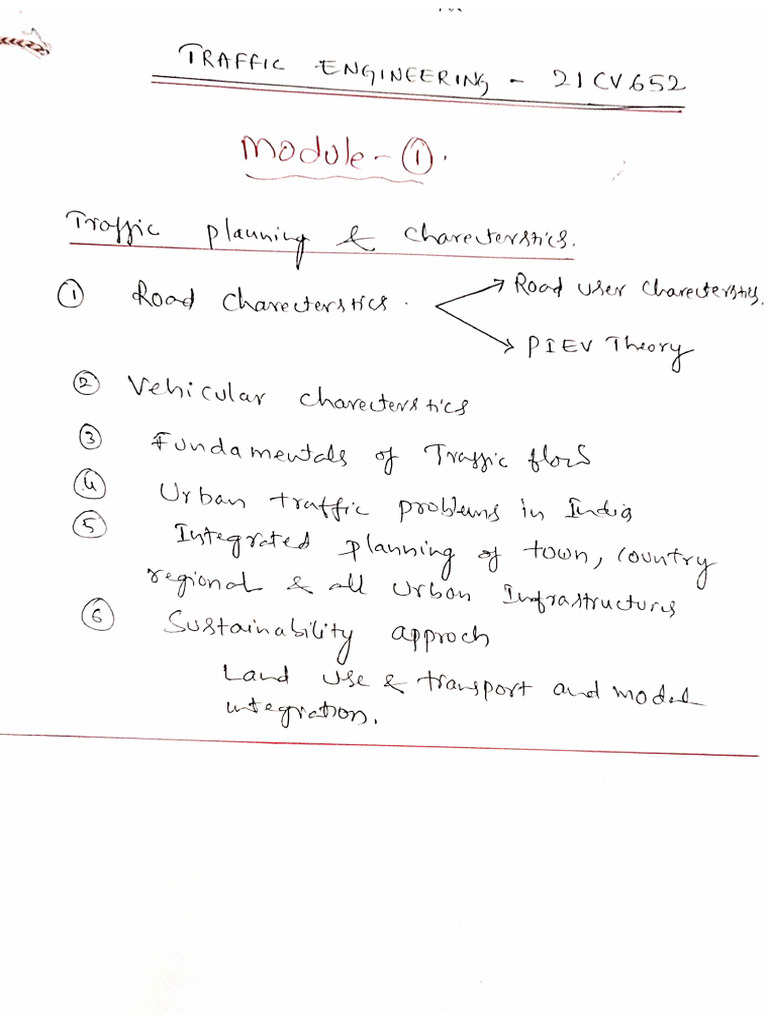 TRAFFIC ENGINEERING - 21CV652
Module - ①.
Traffic planning & charecterstics.
① Road charecterstics.
Road user charecterstics.
PIEV Theory
② Vehicular charecterstics
③ Fundamentals of Traffic flow
④ Urban traffic problems in India
⑤ Integrated planning of town, country
regional & all urban Infrastructures
⑥ Sustainability approch
Land use & transport and modal
integration.